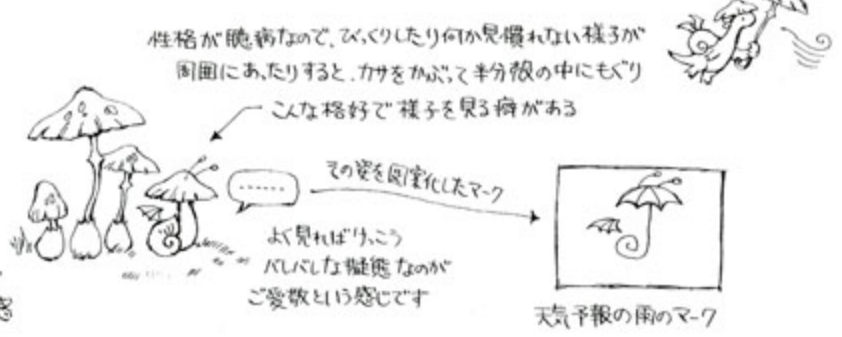 性格が臆病なので、びっくりしたり何か見慣れない様子が
周囲にあったりすると、カサをかぶって半分殻の中にもぐり
こんな格好で様子を見る癖がある
……
その姿を図案化したマーク
よく見ればけっこう
バレバレな擬態なのが
ご愛敬という感じです
天気予報の雨のマーク